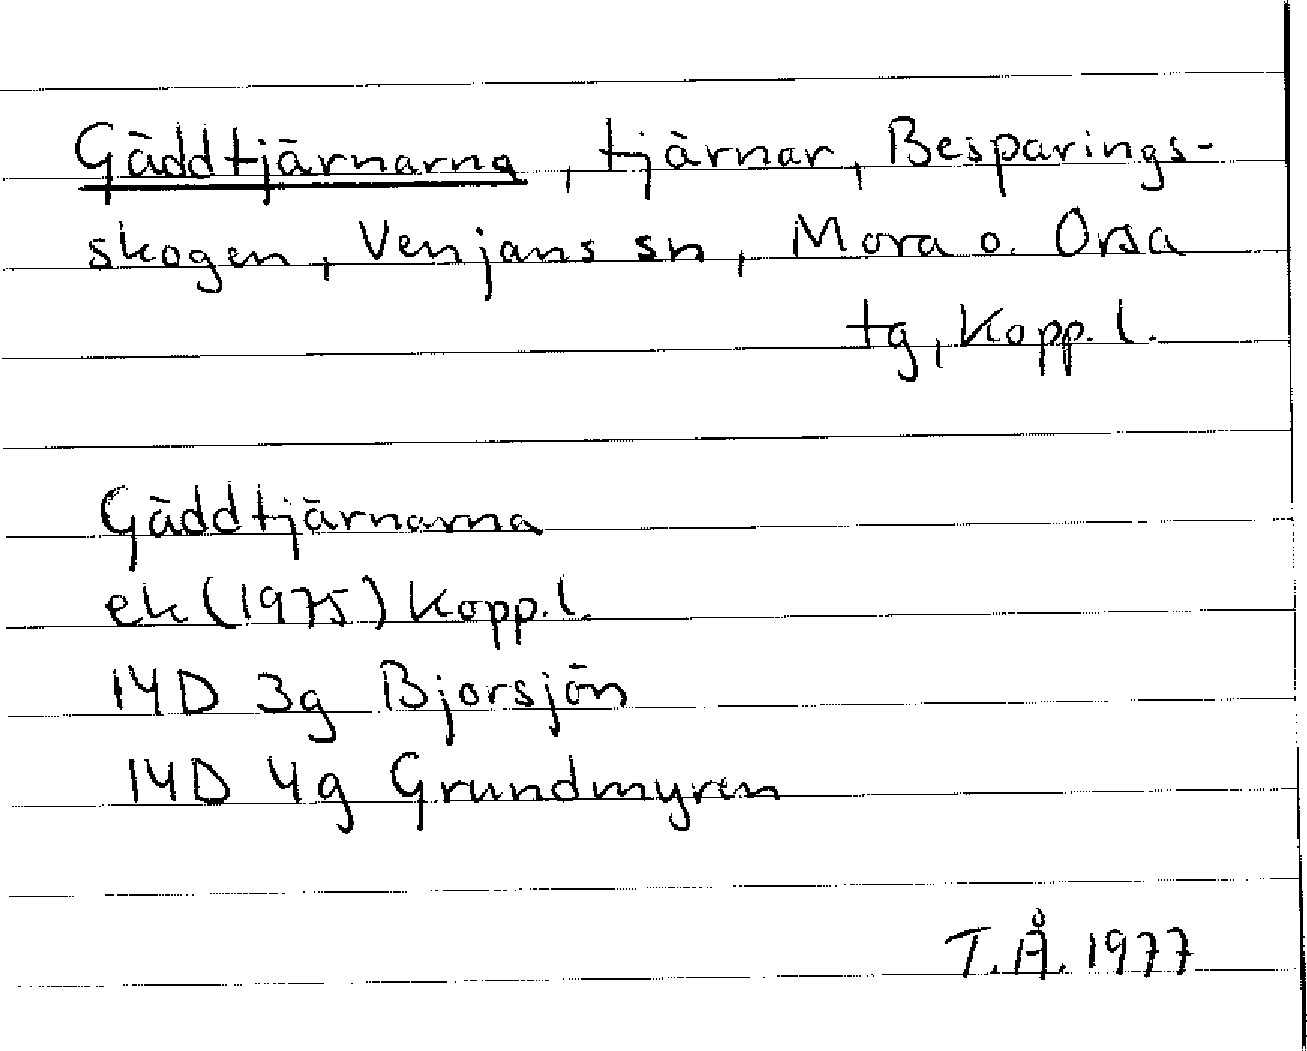 Gäddtjärnarna, tjärnar, Besparings-
skogen, Venjans sn, Mora o. Orsa
tg, Kopp. l.
Gäddtjärnarna
ek (1975) Kopp. l.
14D 3g Bjorsjön
14D 4g Grundmyren
T.Å. 1977